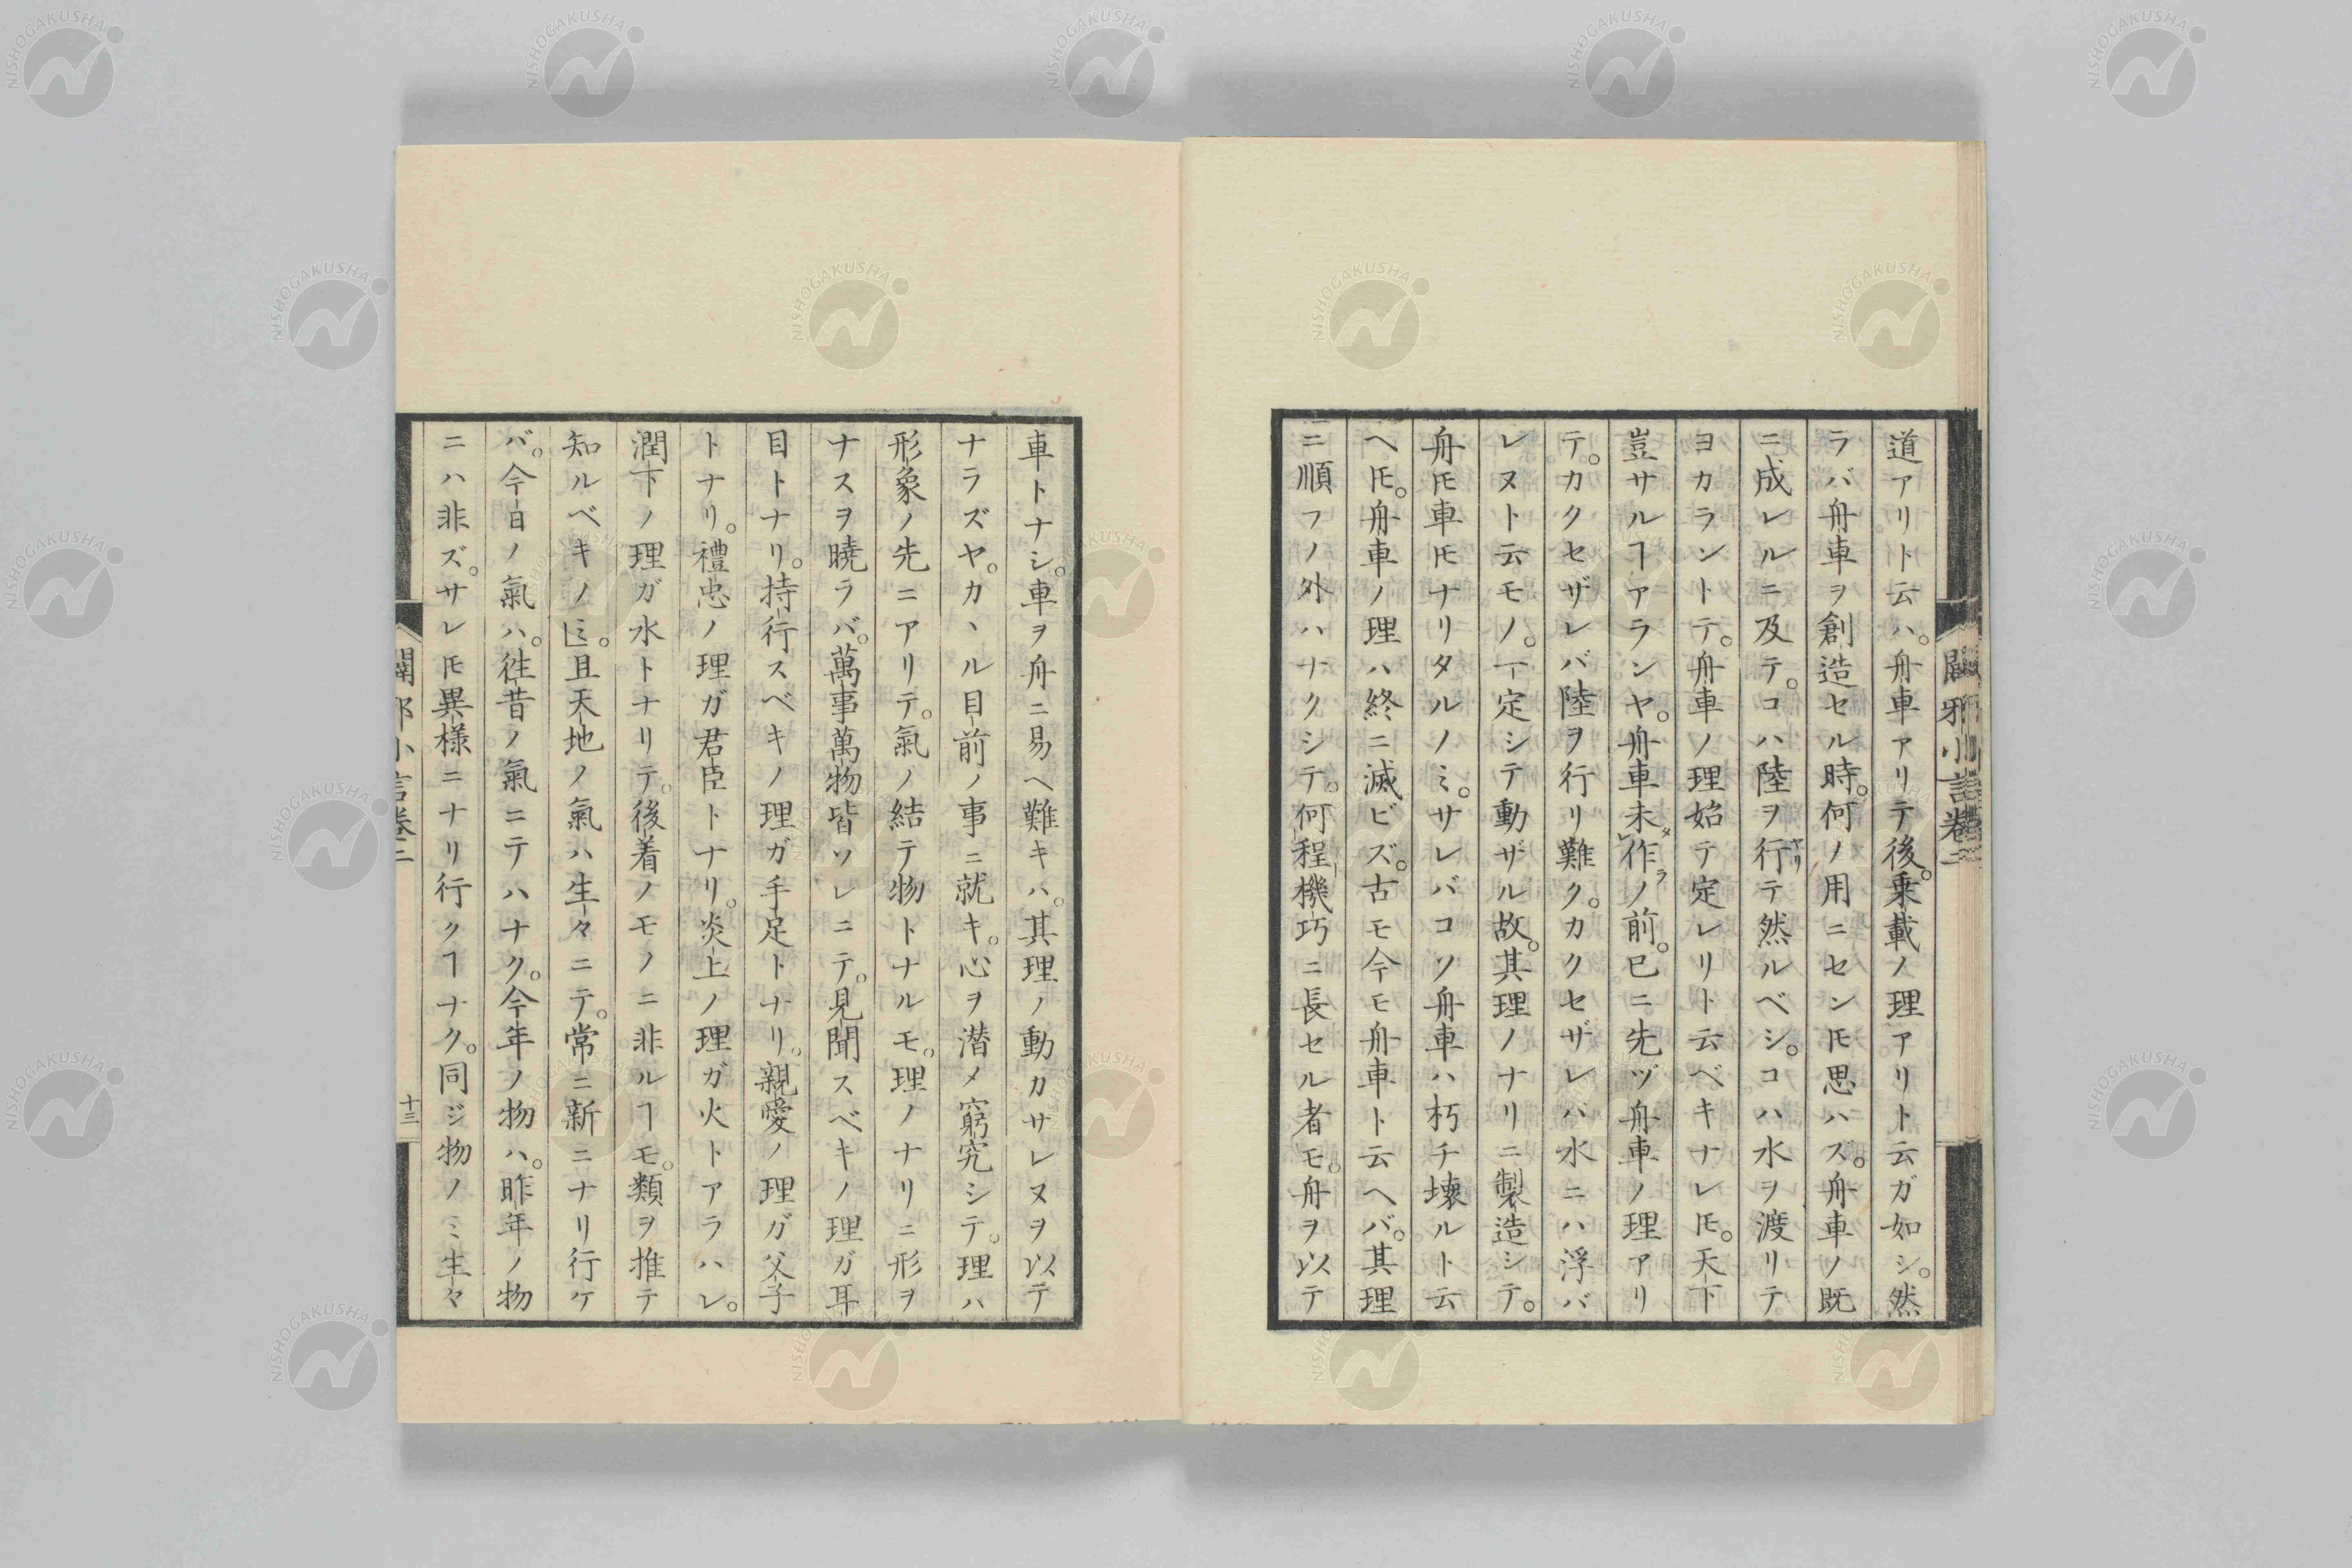 道アリト云ハ。舟車アリテ後。乗載ノ理アリト云ガ如シ。然
ラバ舟車ヲ創造セル時。何ノ用ニセンﾄﾓ思ハズ。舟車ノ既
ニ成レルニ及テ。コハ陸ヲ行テ然ルベシ。コハ水ヲ渡リテ
ヨカラントテ。舟車ノ理始テ定レリト云ベキナレ𪜈。天下
豈サルヿアランヤ。舟車未作ラノ前。已ニ先ヅ舟車ノ理アリ
テ。カクセザレバ陸ヲ行リ難ク。カクセザレバ水ニハ浮バ
レヌト云モノ。一定シテ動ザル故。其理ノナリニ製造シテ。
舟𪜈車𪜈ナリタルノミ。サレバコソ舟車ハ朽チ壞ルト云
ヘ𪜈。舟車ノ理ハ終ニ滅ビズ。古モ今モ舟車ト云ヘバ。其理
ニ順フノ外ハナクシテ。何程機巧ニ長セル者モ。舟ヲ以テ
闢邪小言卷二
車トナシ。車ヲ舟ニ易ヘ難キハ。其理ノ動カサレヌヲ以テ
ナラズヤ。カヽル目前ノ事ニ就キ。心ヲ潜メ窮究シテ。理ハ
形象ノ先ニアリテ。氣ノ結テ物トナルモ。理ノナリニ形ヲ
ナスヲ曉ラバ。萬事萬物皆ソレニテ。見聞スベキノ理ガ耳
目トナリ。持行スベキノ理ガ手足トナリ。親愛ノ理ガ父子
トナリ。禮忠ノ理ガ君臣トナリ。炎上ノ理ガ火トアラハレ。
潤下ノ理ガ水トナリテ。後着ノモノニ非ルヿモ。類ヲ推テ
知ルベキノミ。且天地ノ氣ハ生々ニテ。常ニ新ニナリ行ケ
バ。今日ノ氣ハ。往昔ノ氣ニテハナク。今年ノ物ハ。昨年ノ物
ニハ非ズ。サレ𪜈異様ニナリ行クヿナク。同ジ物ノミ生々
闢邪小言卷二
十三
NISHOGAKUSHA